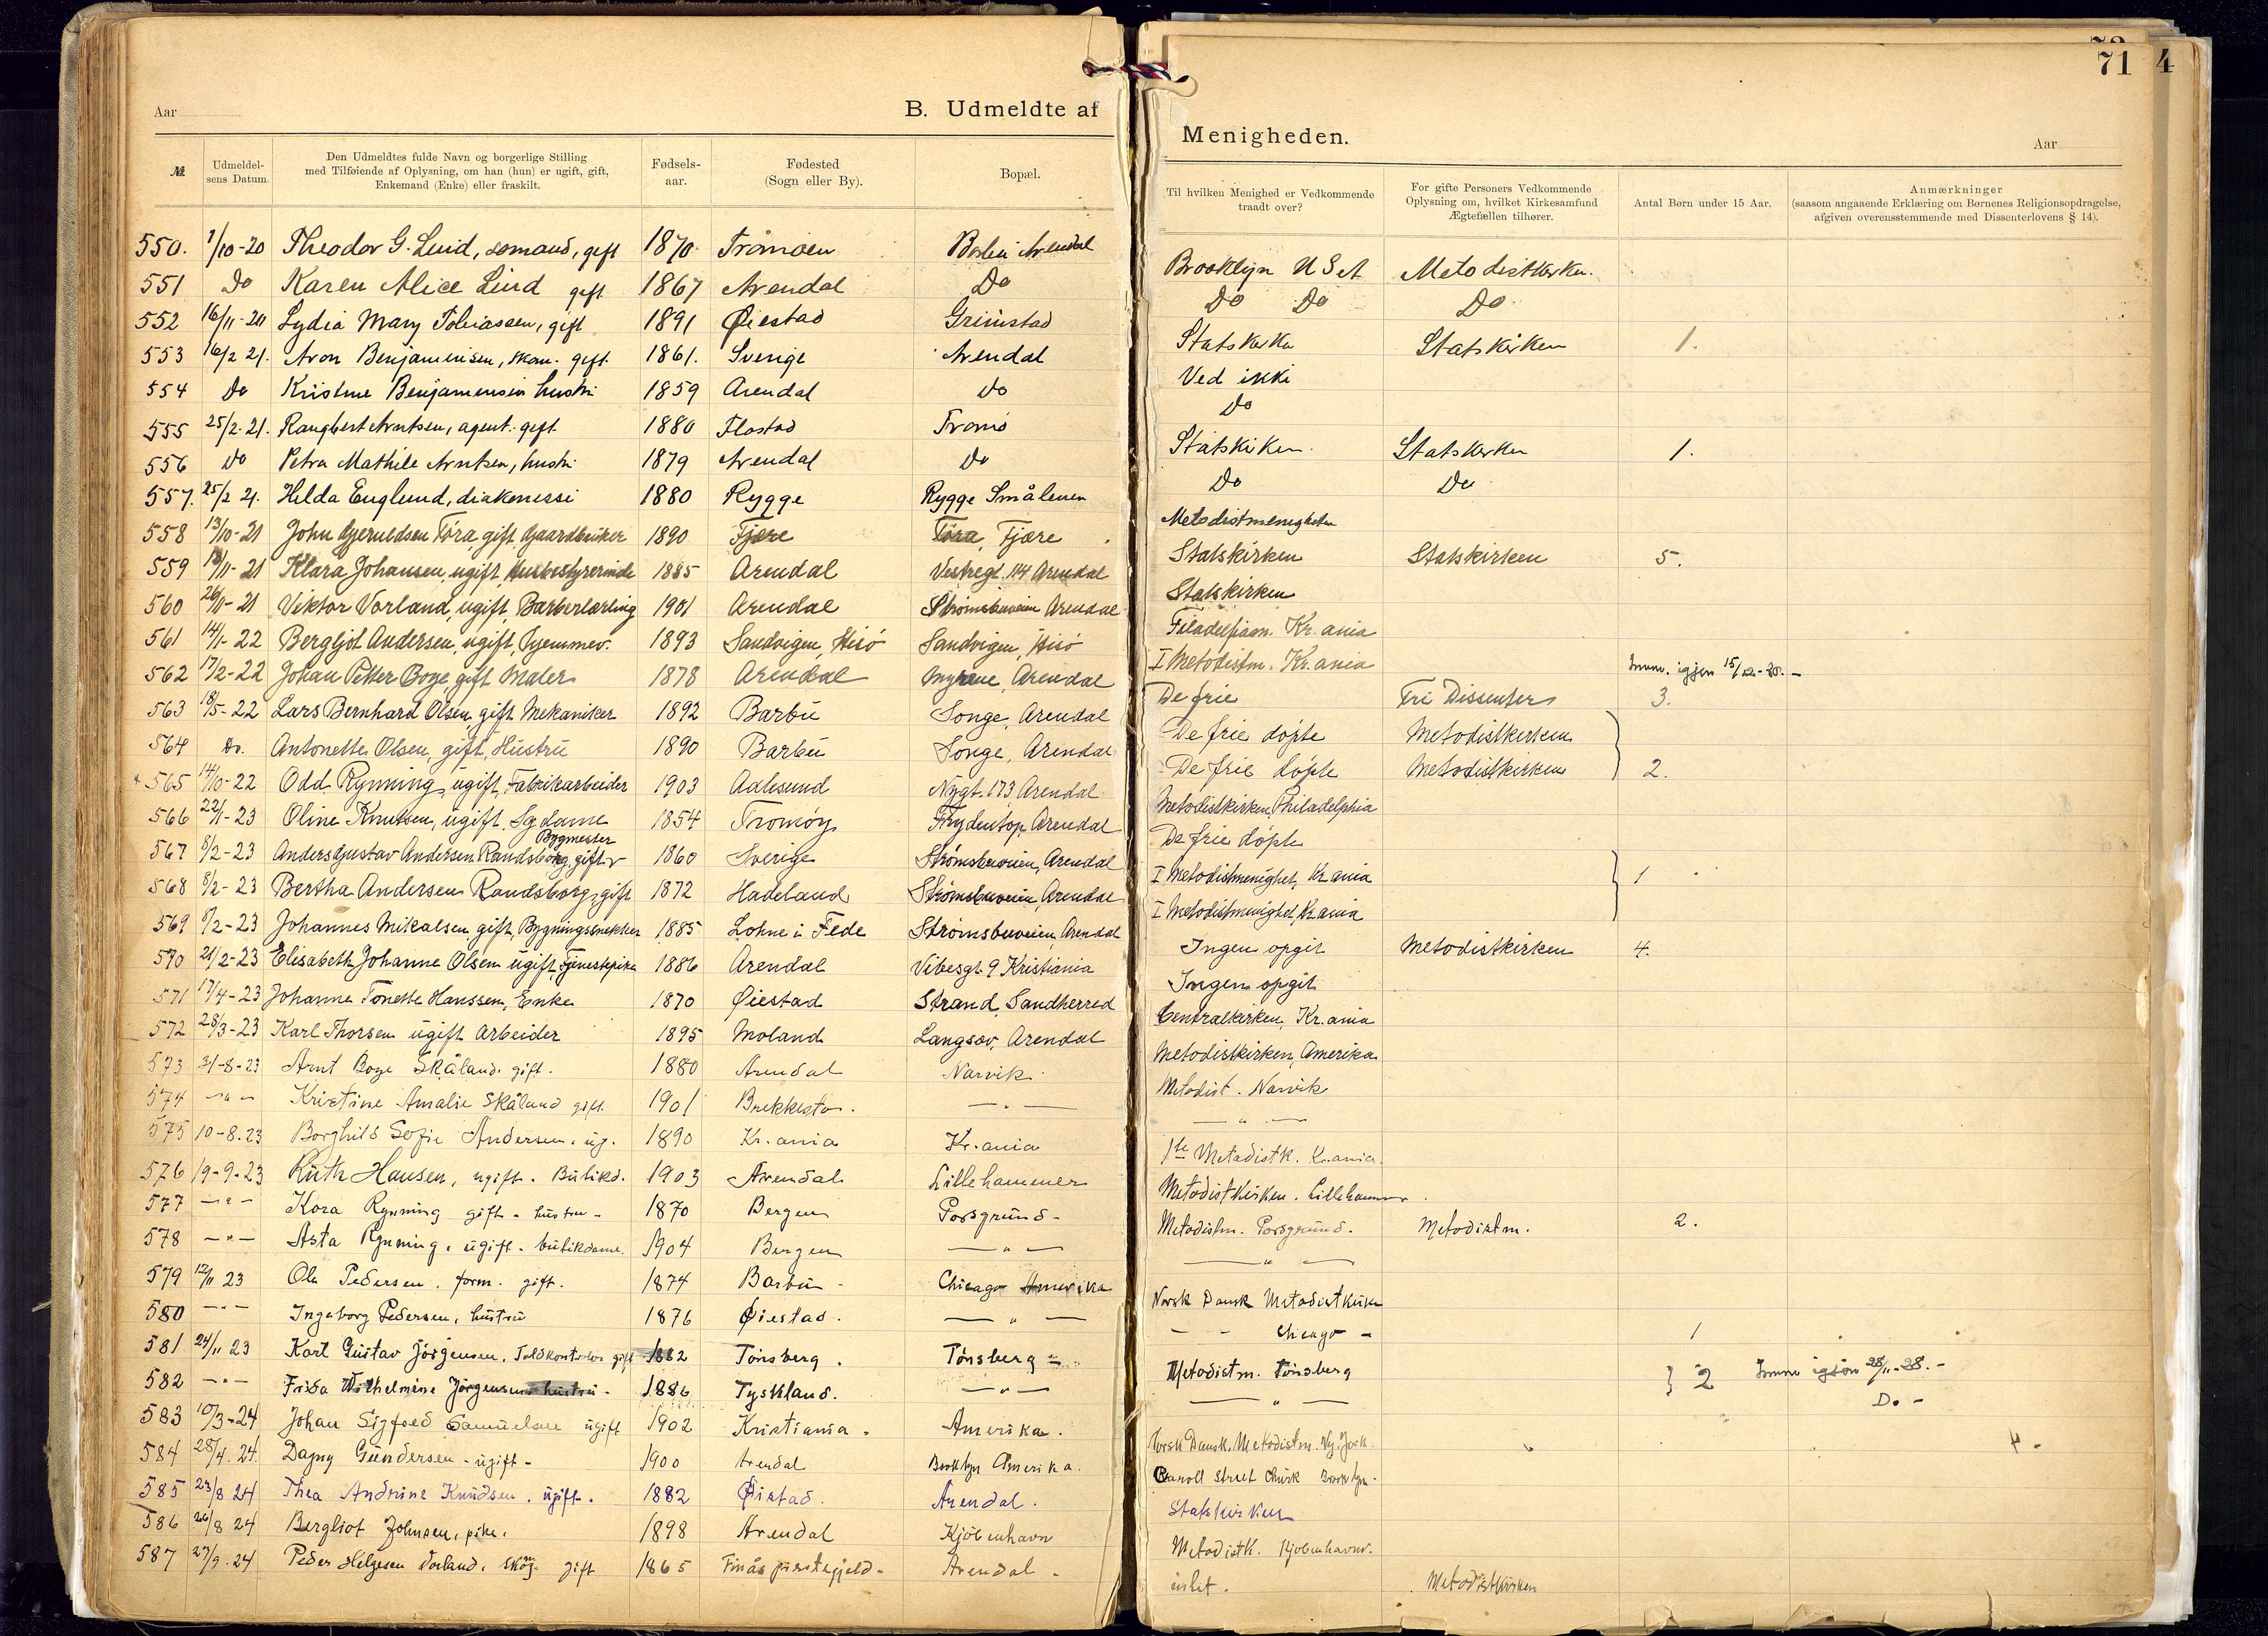 Aar
B. Udmeldte af
№
Udmeldel-
sens Datum.
Den Udmeldtes fulde Navn og borgerlige Stilling
med Tilføiende af Oplysning, om han (hun) er ugift, gift,
Enkemand (Enke) eller fraskilt.
Fødsels-
aar.
Fødested
(Sogn eller By).
Bopæl.
550. 1/10-20 Theodor G. Lind, sømand, gift 1870. Tromøen Arendal
551 Do Karen Alice Lind gift 1867 Arendal Do
552 16/11-20 Lydia Mary Tobiassen, gift 1891 Øiestad Grimstad
553 16/2 21. Aron Benjaminsen, skom. gift 1861. Sverige Arendal
554 Do Kristine Benjaminsen hustru 1859 Arendal Do
555 25/2-21. Arntsen, agent. gift 1880 Flostad Tromø
556 Do Petra Mathile Arntsen, hustru 1879 Arendal Do
557. 25/2 21. Hilda Englund, diakonesse 1880 Rygge Rygge Smålenene
558 13/10-21 John Gjeruldsen Töra, gift, Gaardbruker 1890 Fjære Töra, Fjære
559 18/11-21 Klara Johansen, ugift, Husbestyrerinde 1885 Arendal Vestregt. 114 Arendal
560 26/11-21 Viktor Vorland, ugift, Barberlærling 1901 Arendal Strømsbuveien Arendal
561 14/1-22 Bergljot Andersen, ugift, Hjemmev. 1893 Sandvigen, Hisö Sandvigen, Hisö
562 17/2-22 Johan Petter Boye, gift Maler 1878 Arendal Myrene, Arendal
563 18/5-22 Lars Bernhard Olsen, gift Mekaniker 1892 Barbu Songe, Arendal
564 Do. Antonette Olsen, gift, Hustru 1890 Barbu Songe, Arendal
565 14/10-22 Odd Rynning, ugift, Fabrikarbeider 1903 Aalesund Nygt. 173, Arendal
566 22/1-23 Oline Knutsen, ugift, Sydame 1854 Tromøy Frydentop, Arendal
Bygmester
567 8/2-23 Anders Gustav Andersen Randsborg, gift 1860 Sverige Strømsbuveien, Arendal
568 8/2-23 Bertha Andersen Randsborg, gift 1872 Hadeland Strømsbuveien, Arendal
569 8/2-23 Johannes Mikalsen gift, Bygningssnekker 1885 Lohne i Fede Strømsbuveien, Arendal
570 21/2-23 Elisabeth Johanne Olsen ugift, Tjenestepike 1886 Arendal Vibesgt. 9 Kristiania
571 17/4-23 Johanne Tonette Hanssen, Enke 1870 Øiestad Strand, Sandherred
572 28/3-23 Karl Thorsen ugift Arbeider 1895 Moland Langsæv, Arendal
573 31-8-23 Arnt Boye Skåland. gift. 1880 Arendal Narvik
574 —"— Kristine Amalie Skåland gift. 1901 Brekkestø. —"—
575 10-8.23 Borghild Sofie Andersen, ug. 1890 Kr.ania Kr.ania
576 19-9-23 Ruth Hansen, ugift. Butikd. 1903 Arendal Lillehammer
577 —"— Kora Rynning gift - hustru - 1870 Bergen Porsgrund -
578 —"— Asta Rynning, ugift - butikdame. 1904 Bergen —"—
579 12/11 23 Ole Pedersen, form. gift. 1874 Barbu - Chicago Amerika
580 —"— Ingeborg Pedersen, hustru 1876 Øiestad. —"—
581 24/11 23 Karl Gustav Jörgensen, Toldkontrolør gift 1882 Tönsberg. Tönsberg -
582 —"— Frida Wilhelmine Jörgensen hustru - 1886 Tyskland. —"—
583 10/3-24 Johan Sigfred Samuelsen ugift 1902 Kristiania. Amerika.
584 28/4.24. Dagny Gundersen - ugift - 1900 Arendal Brooklyn Amerika.
585 23/8 24 Thea Andrine Knudsen. ugift. 1882 Øistad. Arendal.
586 26/8 24 Bergliot Johnsen, pike. 1898 Arendal Kjøbenhavn
587 27/9.24 Peder Helgesen Vorland, gift 1865 Finås præstegjeld - Arendal -
71 4
Menigheden.
Aar
Til hvilken Menighed er Vedkommende
traadt over?
For gifte Personers Vedkommende
Oplysning om, hvilket Kirkesamfund
Ægtefællen tilhører.
Antal Børn under 15 Aar.
Anmærkninger
(saasom angaaende Erklæring om Børnenes Religionsopdragelse,
afgiven overensstemmende med Dissenterlovens § 14).
Brooklyn U S A Metodistkirken.
Do Do Do
Statskirken Statskirken 1.
Ved ikki
Do
Statskirken. Statskirken 1.
Do Do
Metodistmenigheten
Statskirken Statskirken 5.
Statskirken
Filadelfiam. Kr.ania
I Metodistm. Kr.ania Innm. igjen 15/12-25. -
De frie Fri Dissenter 3.
De frie døpte Metodistkirken
De frie døpte Metodistkirken 2.
Metodistkirken, Philadelphia
De frie døpte
I Metodistmenighet, Kr.ania 1
I Metodistmenighet, Kr.ania
Ingen opgit Metodistkirken 4.
Ingen opgit
Centralkirken, Kr.ania
Metodistkirken, Amerika
Metodist. Narvik
—"—
1ste Metodistk. Kr.ania.
Metodistkirken. Lillehammer
Metodistm. Porsgrund. Metodistm. 2.
—"—
Norsk Dansk Metodistkirke
- - Chicago - 1
Metodistm. Tönsberg } 2 Innm igjen 28/11-28. -
—"— Do -
Norsk Dansk. Metodistm. Ny. York.
Caroll Street Church Brooklyn.
Statskirken
Metodistk. Kjøbenhavn.
intet. Metodistkirken